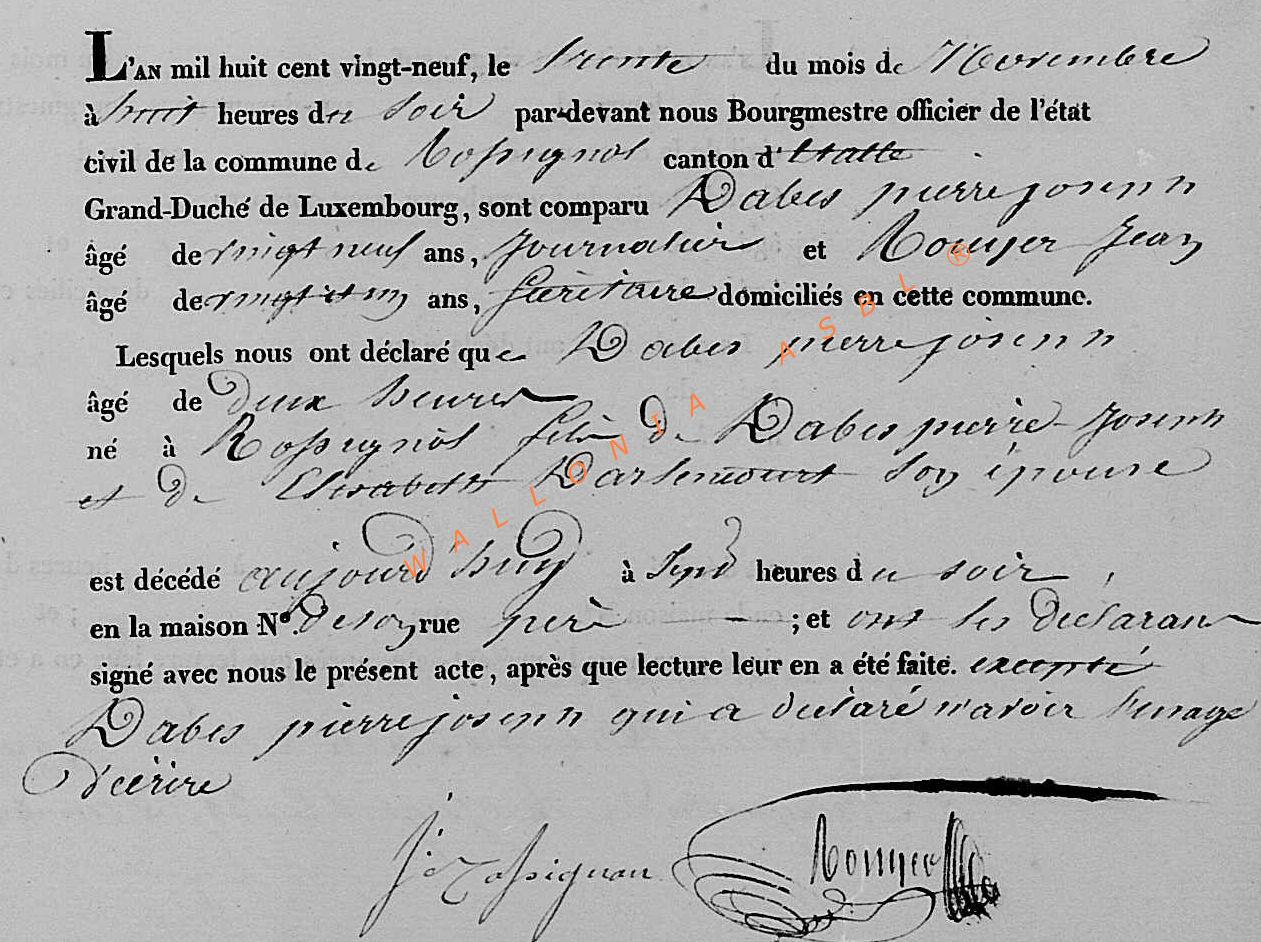 L'AN mil huit cent vingt-neuf, le trente du mois de Novembre
à huit heures du soir par-devant nous Bourgmestre officier de l'état
civil de la commune de Rossignol canton d'Etalle
Grand-Duché de Luxembourg, sont comparu Dabes pierre joseph
âgé de vingt neuf ans, Journalier et Rouyer Jean
âgé de vingt et un ans, Sécrétaire domiciliés en cette commune.
Lesquels nous ont déclaré que Dabes pierre joseph
âgé de deux heures
né à Rossignol fils de Dabes pierre Joseph
et de Elisabeth son épouse
est décédé aujourd'huy à sept heures du soir,
en la maison N°. de son rue père – ; et ont les declarans
signé avec nous le présent acte, après que lecture leur en a été faite. excepté
Dabes pierre joseph qui a déclaré n'avoir l'usage
d'écrire
Rouyer
WALLONIA ASBL ®